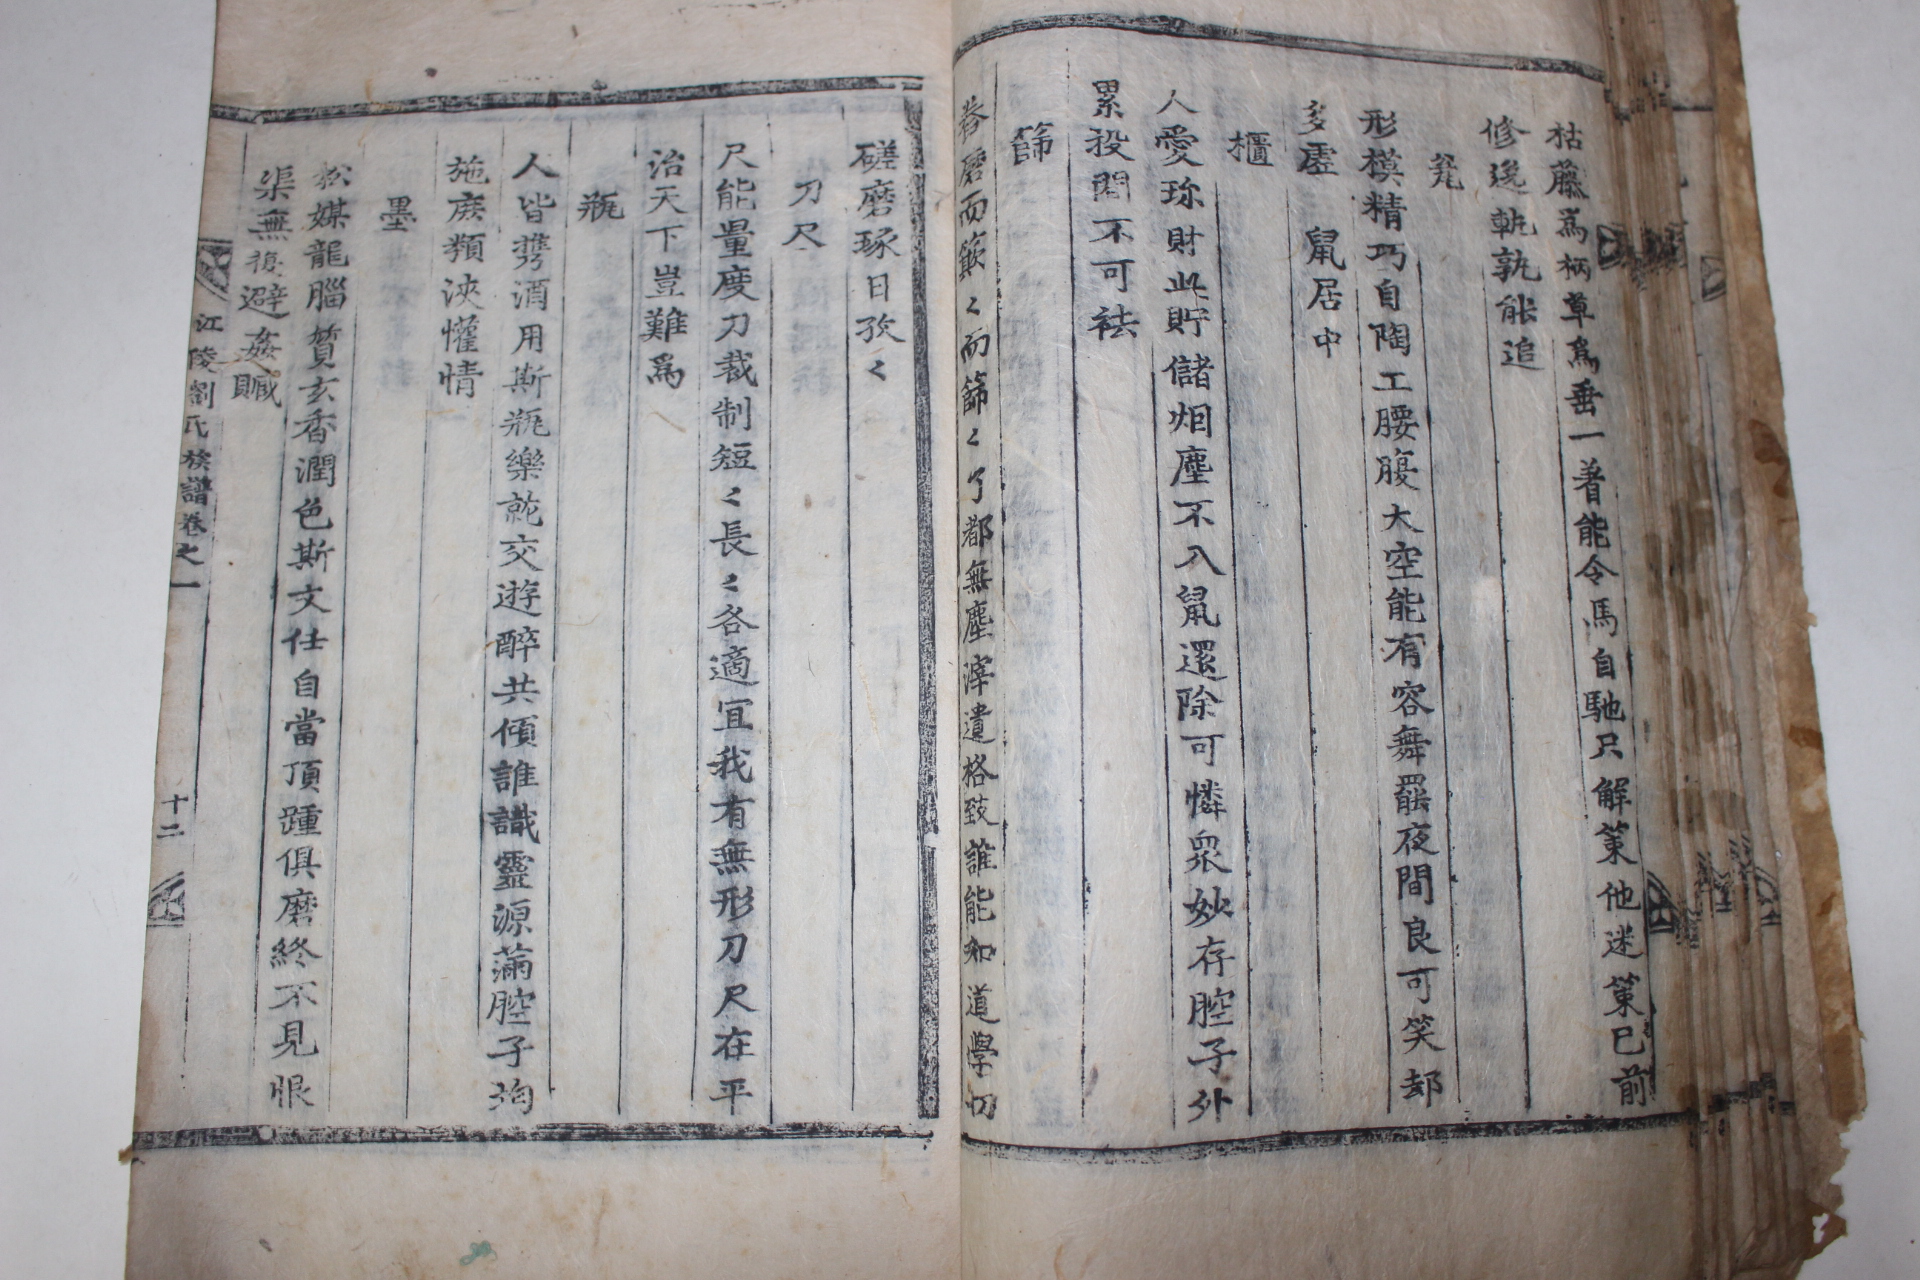 枯藤爲柄草爲垂一著能令馬自馳只解策他迷策已前
修逸軌孰能追
瓮
形模精巧自陶工腰腹大空能有容舞罷夜間良可笑却
多虛鼠居中
櫃
人愛珎財此貯儲烟塵不入鼠還除可憐衆妙存腔子外
累投閒不可祛
篩
舂磨而簸〻而篩〻了都無塵滓遺格致誰能知道學切
磋磨琢日孜〻
刀尺
尺能量度刀裁制短〻長〻各適宜我有無形刀尺在平
治天下豈難爲
瓶
人皆携酒用斯瓶樂乾交遊醉共傾誰識靈源滿腔子
施庶類浹懽情
墨
松媒龍腦質玄香潤色斯文任自當頂踵俱磨終不見恨
渠無復避姦贓
江陵劉氏族譜卷之一
十二